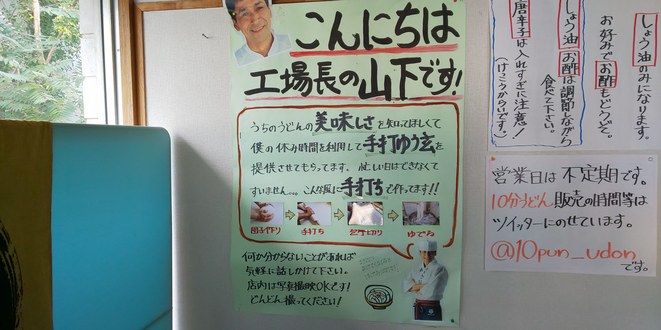 こんにちは
工場長の山下です!
うちのうどんの美味しさを知ってほしくて
僕の休み時間を利用して手打ゆう玄を
提供させてもらってます。忙しい日はできなくて
すいません… こんな風に手打ちで作ってます!!
団子作り
手打ち
包丁切り
ゆでる
何か分からないことがあれば
気軽に話しかけて下さい。
店内は写真撮影OKです!
どんどん撮ってください!
しょう油のみになります。
お好みでお酢もどうぞ。
しょう油
お酢は調節しながら
食べて下さい。
唐辛子は入れすぎに注意!
(けっこうからいです。)
営業日は不定期です。
10分うどん販売の時間等は
ツイッターにのせています。
@10pun_udon
です。